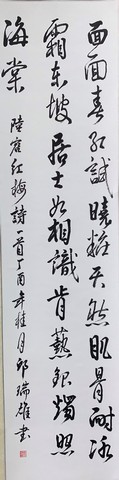 面面春红試曉粧天然肌骨耐冰
霜东坡居士如相識肯爇銀燭照
海棠
陸宼红梅詩一首丁酉年桂月邱瑞雄書